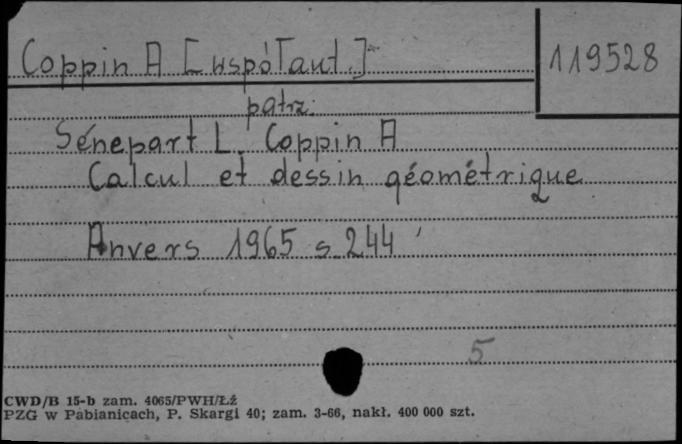 Coppin A [współaut.]
119528
patrz:
Sénepart L. Coppin A
Calcul et dessin géométrique
Anvers 1965 s. 244
5
CWD/B 15-b zam. 4065/PWH/Łź
PZG w Pabianicach, P. Skargi 40; zam. 3-66, nakł. 400 000 szt.